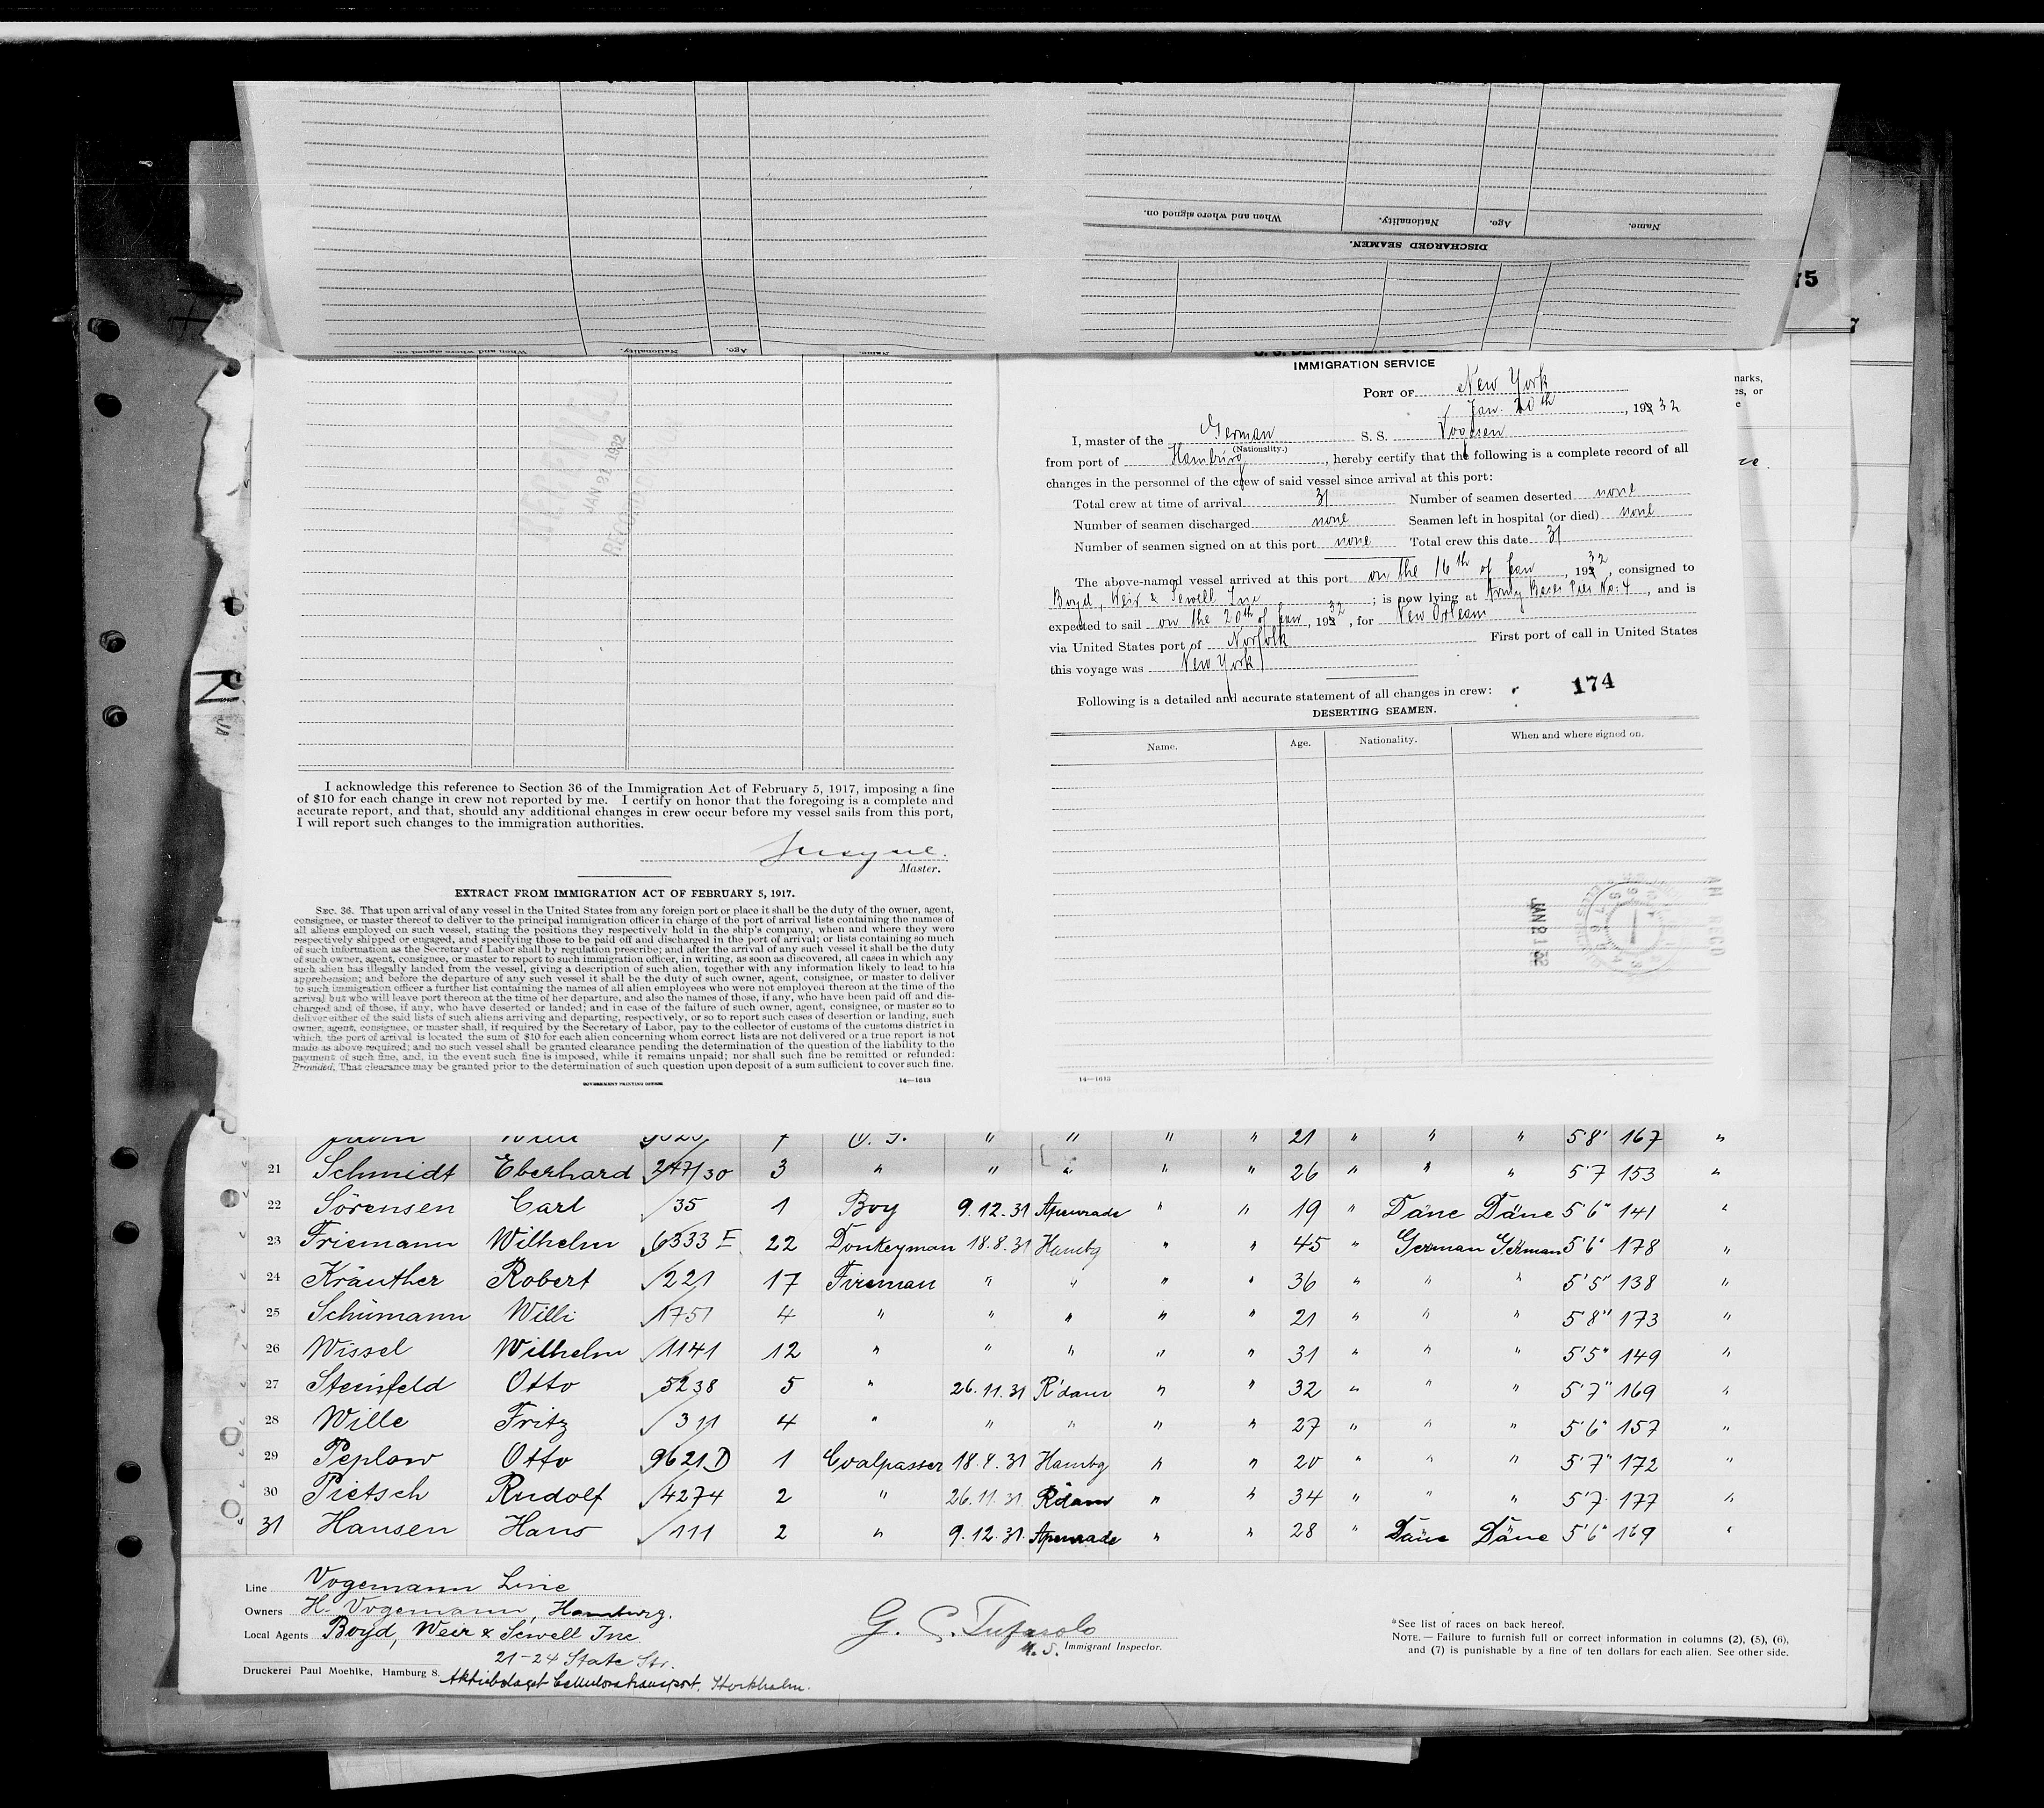 When and where signed on.
Nationality.
Age.
Name.
DISCHARGED SEAMEN.
When and where signed on.
Nationality.
Age.
Name.
75
7
RECEIVED
JAN 21 1932
IMMIGRATION SERVICE
PORT OF New York
Jan. 20th, 19232
I, master of the German S. S.
(Nationality.)
from port of Hamburg, hereby certify that the following is a complete record of all
changes in the personnel of the crew of said vessel since arrival at this port:
Total crew at time of arrival 31 Number of seamen deserted none
Number of seamen discharged none Seamen left in hospital (or died) none
Number of seamen signed on at this port none Total crew this date 31
The above-named vessel arrived at this port on the 16th of Jan, 19232, consigned to
Boyd, Weir & Sewell Inc; is now lying at Army Base Pier No: 4, and is
expected to sail on the 20th of Jan, 19232, for New Orleans
via United States port of Norfolk First port of call in United States
this voyage was New York
Following is a detailed and accurate statement of all changes in crew:
174
DESERTING SEAMEN.
Name. Age. Nationality. When and where signed on.
JAN 21 32
AM RECD
14—1613
marks,
es, or
e
I acknowledge this reference to Section 36 of the Immigration Act of February 5, 1917, imposing a fine
of $10 for each change in crew not reported by me. I certify on honor that the foregoing is a complete and
accurate report, and that, should any additional changes in crew occur before my vessel sails from this port,
I will report such changes to the immigration authorities.
Master.
EXTRACT FROM IMMIGRATION ACT OF FEBRUARY 5, 1917.
SEC. 36. That upon arrival of any vessel in the United States from any foreign port or place it shall be the duty of the owner, agent,
consignee, or master thereof to deliver to the principal immigration officer in charge of the port of arrival lists containing the names of
all aliens employed on such vessel, stating the positions they respectively hold in the ship's company, when and where they were
respectively shipped or engaged, and specifying those to be paid off and discharged in the port of arrival; or lists containing so much
of such information as the Secretary of Labor shall by regulation prescribe; and after the arrival of any such vessel it shall be the duty
of such owner, agent, consignee, or master to report to such immigration officer, in writing, as soon as discovered, all cases in which any
such alien has illegally landed from the vessel, giving a description of such alien, together with any information likely to lead to his
apprehension; and before the departure of any such vessel it shall be the duty of such owner, agent, consignee, or master to deliver
to such immigration officer a further list containing the names of all alien employees who were not employed thereon at the time of the
arrival but who will leave port thereon at the time of her departure, and also the names of those, if any, who have been paid off and dis-
charged and of those, if any, who have deserted or landed; and in case of the failure of such owner, agent, consignee, or master so to
deliver either of the said lists of such aliens arriving and departing, respectively, or so to report such cases of desertion or landing, such
owner, agent, consignee, or master shall, if required by the Secretary of Labor, pay to the collector of customs of the customs district in
which the port of arrival is located the sum of $10 for each alien concerning whom correct lists are not delivered or a true report is not
made as above required; and no such vessel shall be granted clearance pending the determination of the question of the liability to the
payment of such fine, and, in the event such fine is imposed, while it remains unpaid; nor shall such fine be remitted or refunded:
Provided, That clearance may be granted prior to the determination of such question upon deposit of a sum sufficient to cover such fine.
GOVERNMENT PRINTING OFFICE 14—1613
7 O. S. " " " " 21 " " " 5'8' 167 "
21 Schmidt Eberhard 247/30 3 " " " " " 26 " " " 5'7 153 "
22 Sörensen Carl 35 1 Boy 9.12.31 Apenrade " " 19 " Däne Däne 5'6" 141 "
23 Friemann Wilhelm 6333 E 22 Donkeyman 18.8.31 Hambg " " 45 " German German 5'6" 178 "
24 Kräuther Robert 221 17 Fireman " " " " 36 " " " 5'5" 138 "
25 Schümann Willi 1751 4 " " " " " 21 " " " 5'8" 173 "
26 Wissel Wilhelm 1141 12 " " " " " 31 " " " 5'5" 149 "
27 Steinfeld Otto 5238 5 " 26.11.31 R'dam " " 32 " " " 5'7" 169 "
28 Wille Fritz 311 4 " " " " " 27 " " " 5'6" 157 "
29 Peplow Otto 9621 D 1 Coalpasser 18.8.31 Hambg " " 20 " " " 5'7" 172 "
30 Pietsch Rudolf 4274 2 " 26.11.31 R'dam " " 34 " " " 5'7 177 "
31 Hansen Hans 111 2 " 9.12.31 Apenrade " " 28 " Däne Däne 5'6" 169 "
Line Vogemann Line
Owners H. Vogemann, Hamburg.
Local Agents Boyd, Weir & Sewell Inc.
21-24 State Str.
Druckerei Paul Moehlke, Hamburg 8. Aktiebolaget Cellulosatransport, Stockholm.
G. C. Tufarolo
U. S. Immigrant Inspector.
*See list of races on back hereof.
NOTE.—Failure to furnish full or correct information in columns (2), (5), (6),
and (7) is punishable by a fine of ten dollars for each alien. See other side.